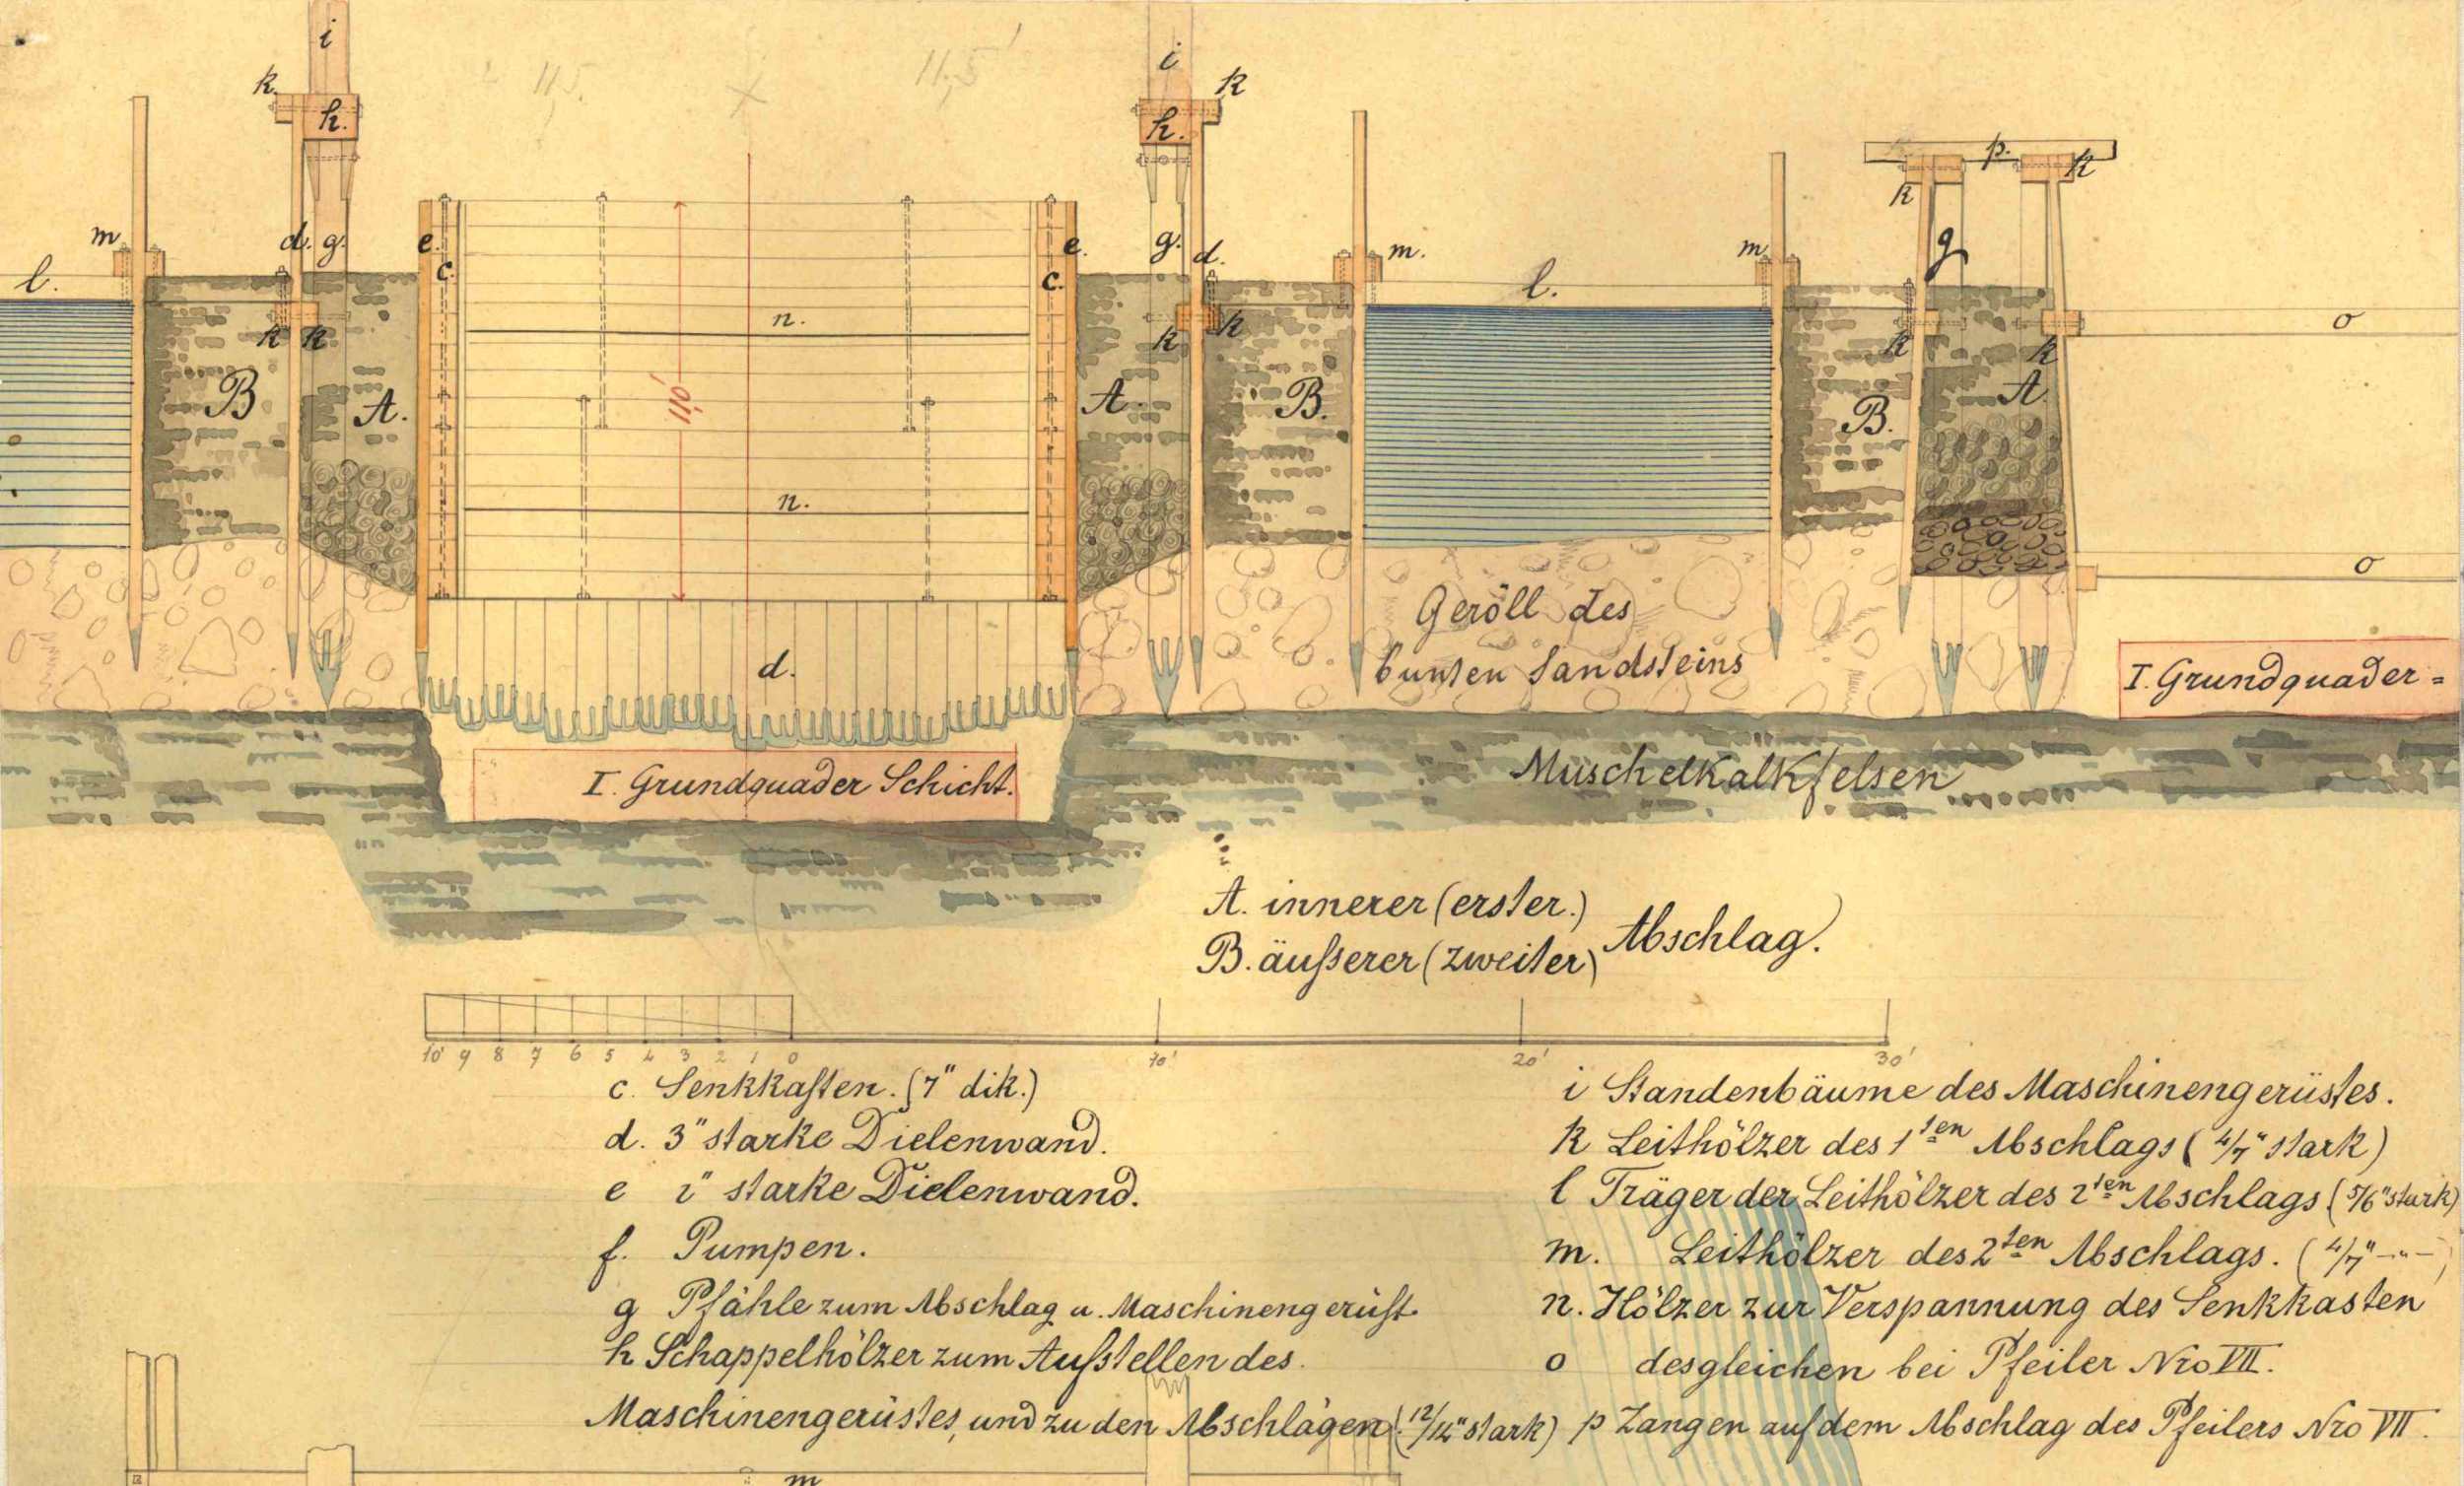 i
i
11,5'
11,5'
k.
h.
k
h.
p.
k
k
m
d. g.
e.
c.
e.
c.
g. d.
m.
m
g
l.
l.
n.
o
k k
k
k
k
k
11,0'
B
A.
A.
B.
B.
A.
n.
o
Geröll des
bunten Sandsteins
d.
I. Grundquader =
I. Grundquader Schicht.
Muschelkalkfelsen
A. innerer (erster.)
B. äußerer (zweiter)
Abschlag.
10' 9 8 7 6 5 4 3 2 1 0 10' 20' 30'
c. Senkkasten. (7" dik.)
d. 3" starke Dielenwand.
e 2" starke Dielenwand.
f. Pumpen.
g Pfähle zum Abschlag u. Maschinengerüst.
h Schappelhölzer zum Aufstellen des
Maschinengerüstes, und zu den Abschlägen (12/14" stark)
i Standenbäume des Maschinengerüstes.
k Leithölzer des 1ten Abschlags (4/7" stark)
l Träger der Leithölzer des 2ten Abschlags (5/6" stark)
m. Leithölzer des 2ten Abschlags. (4/7" -"-)
n. Hölzer zur Verspannung des Senkkasten
o desgleichen bei Pfeiler Nro VII.
p Zangen auf dem Abschlag des Pfeilers Nro VII.
m